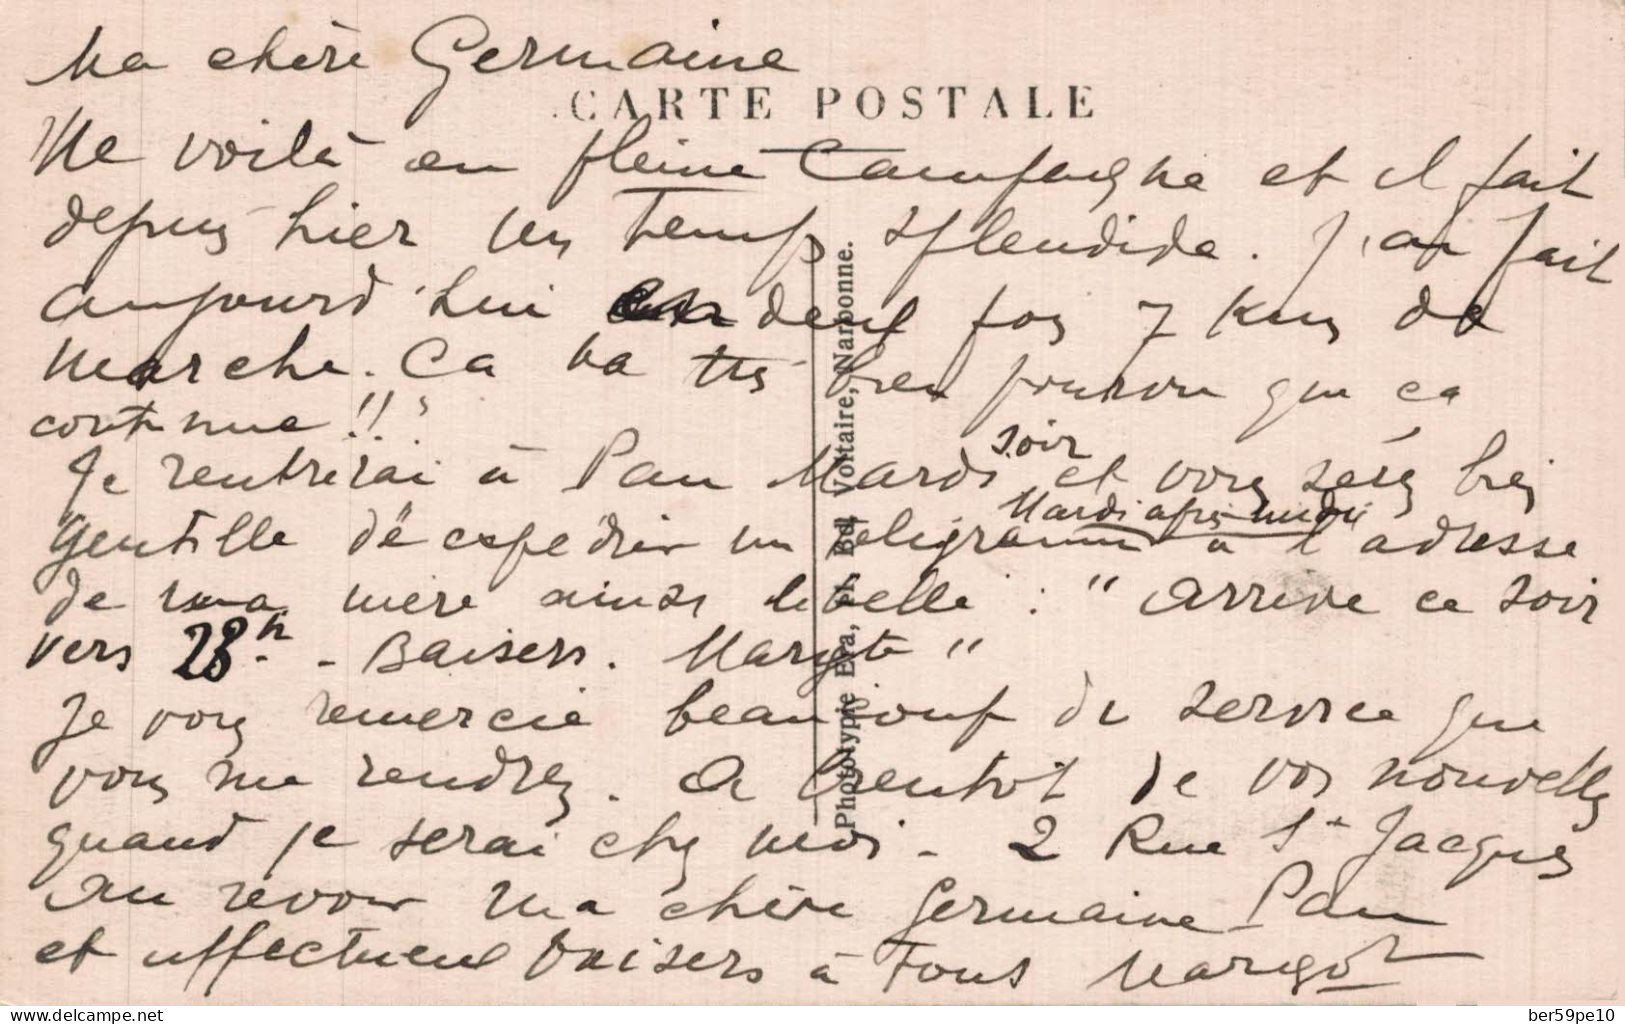 Ma chère Germaine
CARTE POSTALE
Me voilà en pleine Campagne et il fait
depuis hier un temps splendide. J'ai fait
aujourd'hui deux fois 7 Kms de
marche. Ca va très bien pourvu que ca
continue !!
Je rentrerai à Pau Mardi soir et vous serez bien
gentille d'expédier un télégramme Mardi après midi à l'adresse
de ma mère ainsi libellé : "Arrive ce soir
vers 23h. - Baisers. Margot"
Je vous remercie beaucoup du service que
vous me rendrez. A bientot de vos nouvelles
quand je serai chez moi - 2 Rue St Jacques
Au revoir ma chère Germaine - Pau
et affectueux baisers à Tous Margot
Phototypie Era, Bd. Voltaire, Narbonne.
delcampe.net
ber59pe10